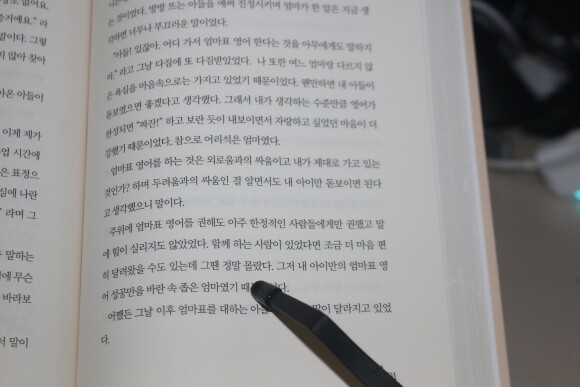 정도 없어요.
증거예요." 라
말이다. 그렇
지 않아 찾아
아온 아들이
이제 제가
업 시간에
은 표정으
실에 나란
" 라며 그
말하는
에 무슨
바라보
서 말이
는 것이었다. 방방 뜨는 아들을 애써 진정시키며 엄마가 한 말은 지금 생
각하면 너무나 부끄러운 말이었다.
"아들! 있잖아. 어디 가서 엄마표 영어 한다는 것을 아무에게도 말하지
마." 라고 그날 다짐에 또 다짐받았었다. 나 또한 여느 엄마랑 다르지 않
은 욕심을 마음속으로는 가지고 있었기 때문이었다. 웬만하면 내 아이만
돋보였으면 좋겠다고 생각했다. 그래서 내가 생각하는 수준만큼 영어가
완성되면 "짜잔!" 하고 보란 듯이 내보이면서 자랑하고 싶었던 마음이 더
강했기 때문이었다. 참으로 어리석은 엄마였다.
엄마표 영어를 하는 것은 외로움과의 싸움이고 내가 제대로 가고 있는
것인가? 하며 두려움과의 싸움인 걸 알면서도 내 아이만 돋보이면 된다
고 생각했으니 말이다.
주위에 엄마표 영어를 권해도 아주 한정적인 사람들에게만 권했고 말
에 힘이 실리지도 않았었다. 함께 하는 사람이 있었다면 조금 더 마음 편
히 달려왔을 수도 있는데 그땐 정말 몰랐다. 그저 내 아이만의 엄마표 영
어 성공만을 바란 속 좁은 엄마였기 때
어쨌든 그날 이후 엄마표를 대하는 말이 달라지고 있었
다.